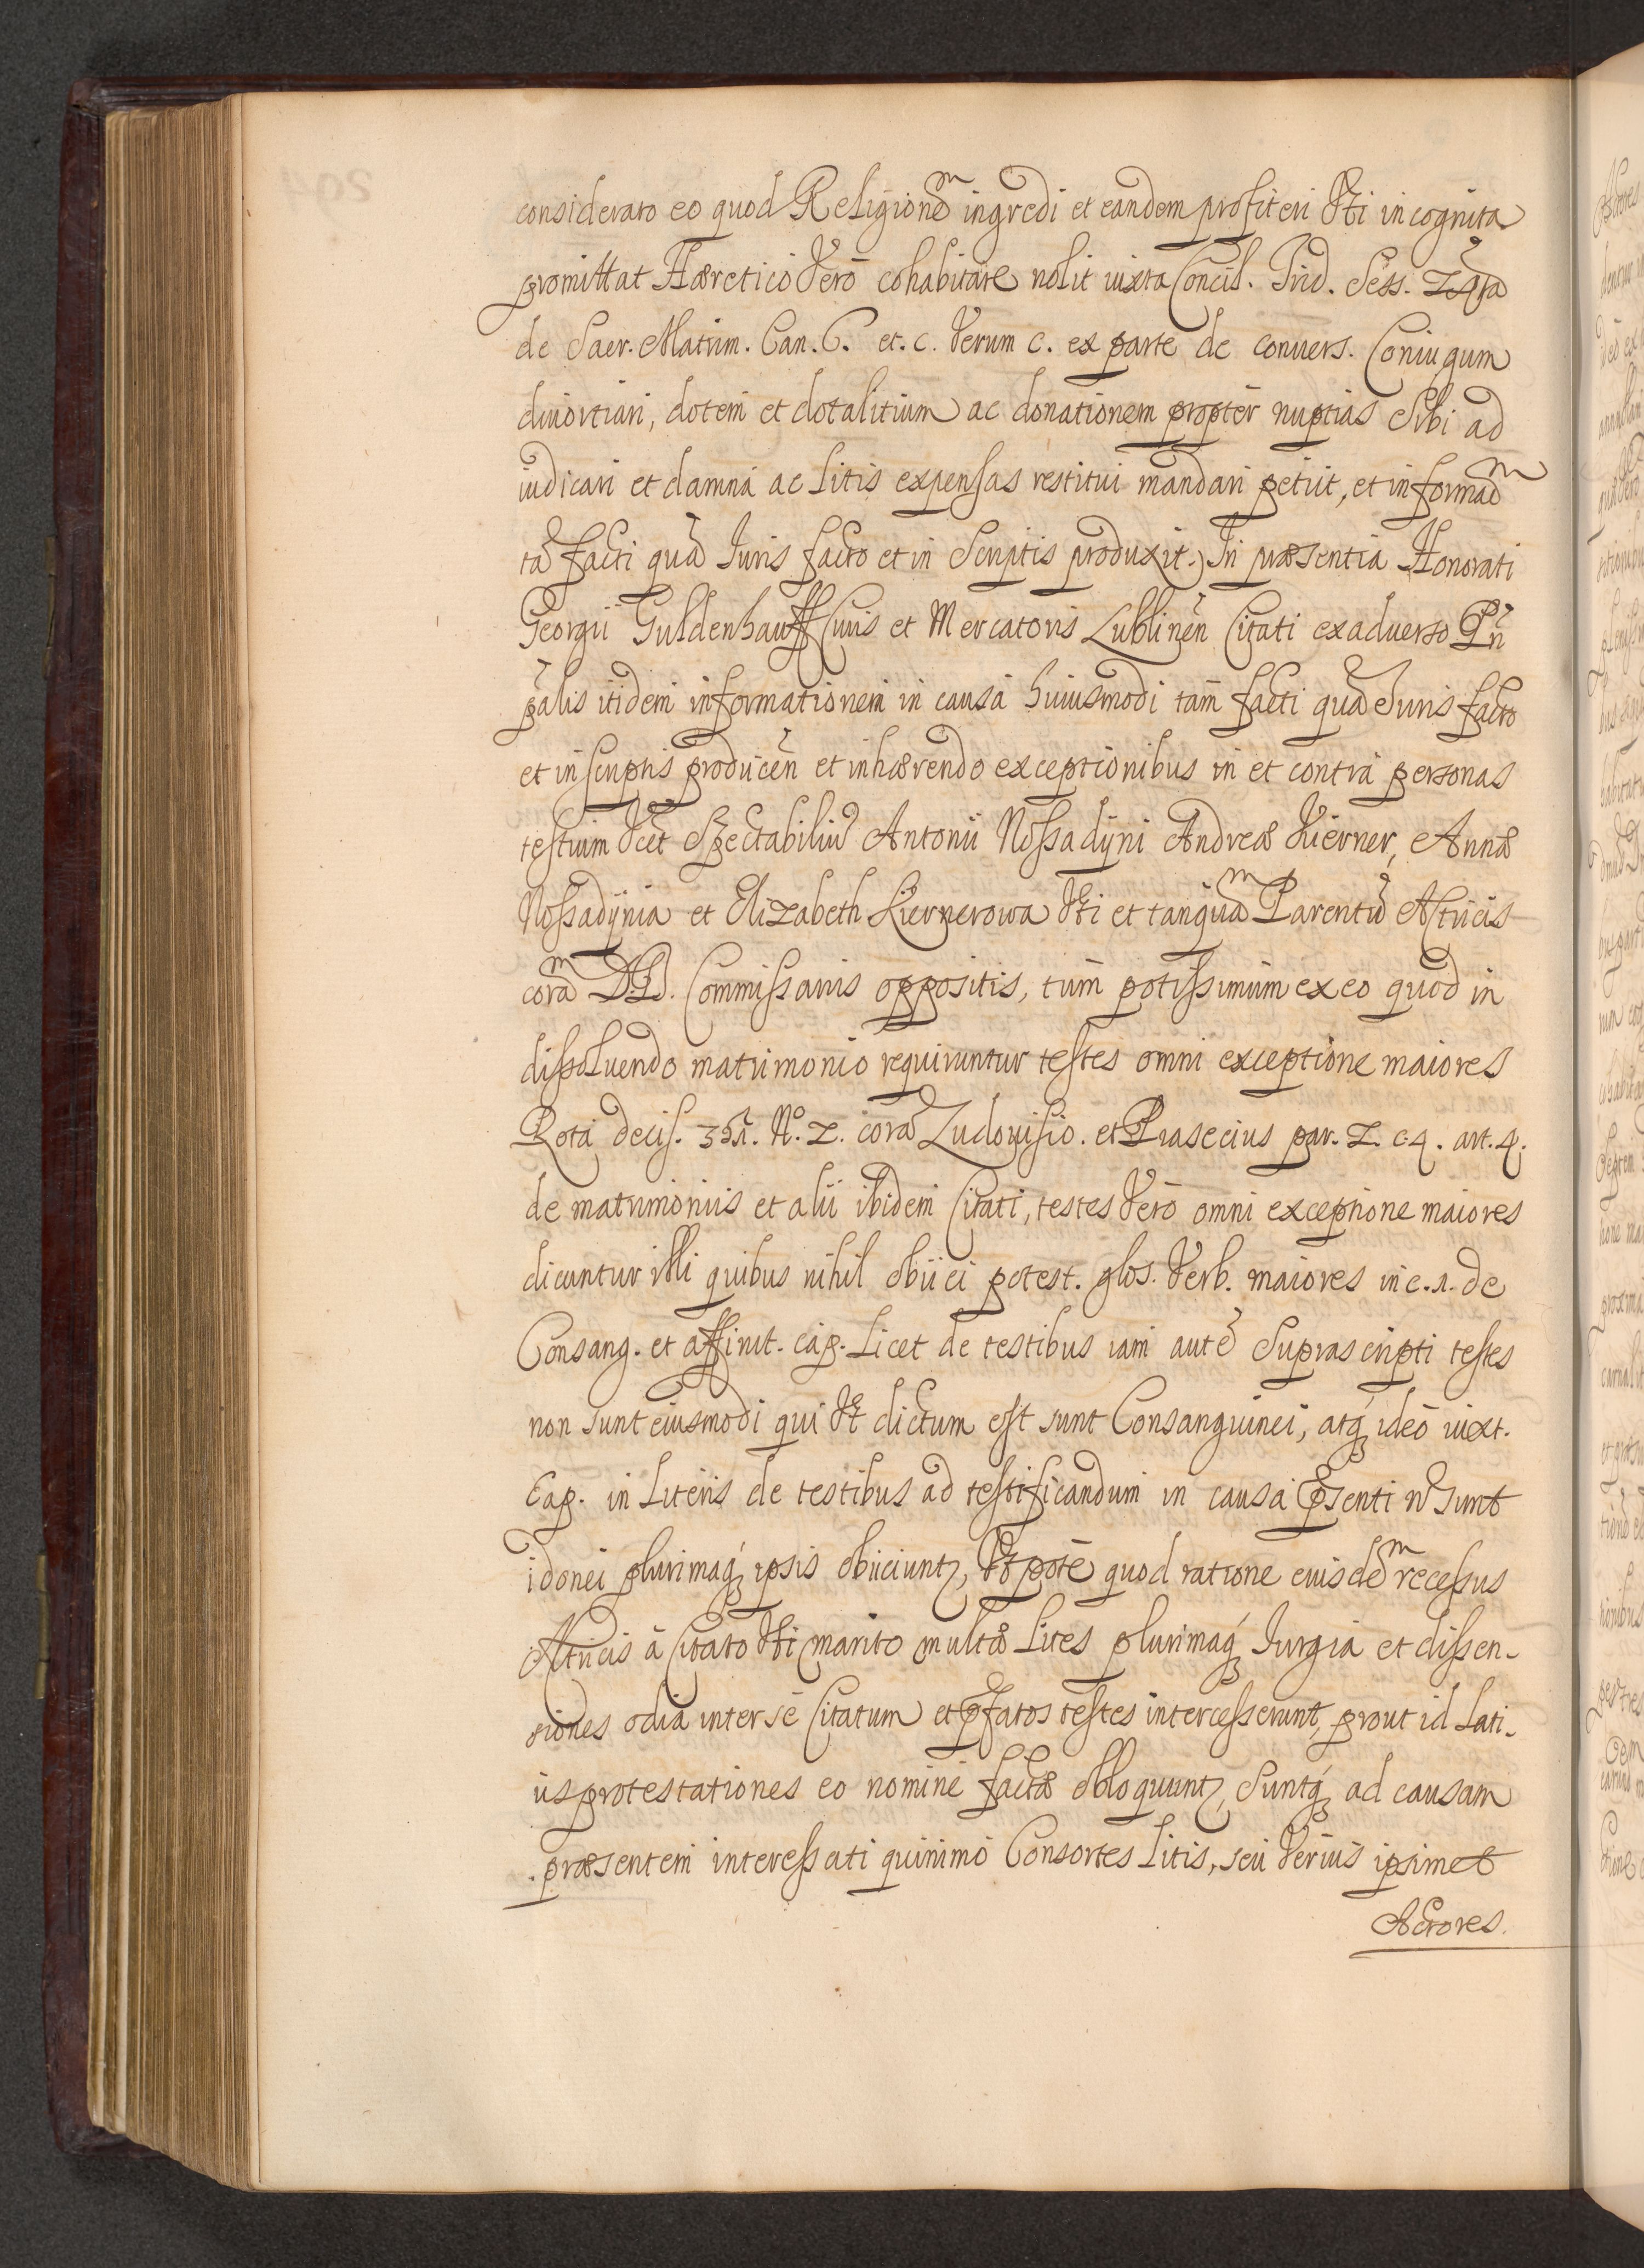 considerato eo quod Religionē ingredi et eandem profiteri Vti incognita
promittat Hæretico Vero cohabitare nolit iuxta Concil. Trid. Sess. 24ta
de Sacr. Matrim. Can. 6. et. c. Verum c. ex parte de conuers. Coniugum
diuortiari, dotem et dotalitium ac donationem propter nuptias Sibi ad
iudicari et damna ac Litis expensas restitui mandari petiit, et informaō
tā facti quā Iuris facto et in Scriptis produxit. In præsentia Honorati
Georgii Guldenhauff Ciuis et Mercatoris Lublineñ Citati exaduerso Prin
palis itidem informationem in causa huiusmodi tam facti quā Iuris facto
et in scriptis produceñ et inhærendo exceptionibus in et contra personas
testium Vcet Spectabiliū Antonii Nossadÿni Andreæ Kierner, Annæ
Nossadÿnia et Elizabeth Kiernerowa Vti et tanquā Parentū Actricis
corā D.D. Commissariis oppositis, tum potissimum ex eo quod in
dissoluendo matrimonio requiruntur testes omni exceptione maiores
Rota decis. 351. No. 2. corā Ludouisio. et Piasecius par. 2. c. 4. art. 4.
de matrimoniis et alii ibidem Citati, testes Vero omni exceptione maiores
dicuntur illi quibus nihil obiici potest. glos. Verb. maiores in c. 1. de
Consang. et affinit. cap. Licet de testibus iam autē Suprascripti testes
non sunt eiusmodi qui Vt dictum est sunt Consanguinei, atq ideo iuxt.
Cap. in Literis de testibus ad testificandum in causa pñsenti nō sunt
idonei plurimaq ipsis obiiciunt, Vtpote quod ratione euisdē recessus
Actricis à Citato Vti marito multæ Lites plurimaq Iurgia et dissen-
siones odia inter se Citatum et pfatos testes intercesserunt, prout id Lati-
us protestationes eo nomine factæ obloquunt, Suntq ad causam
præsentem interessati quinimo Consortes Litis, seu Verius ipsimet
Actores.